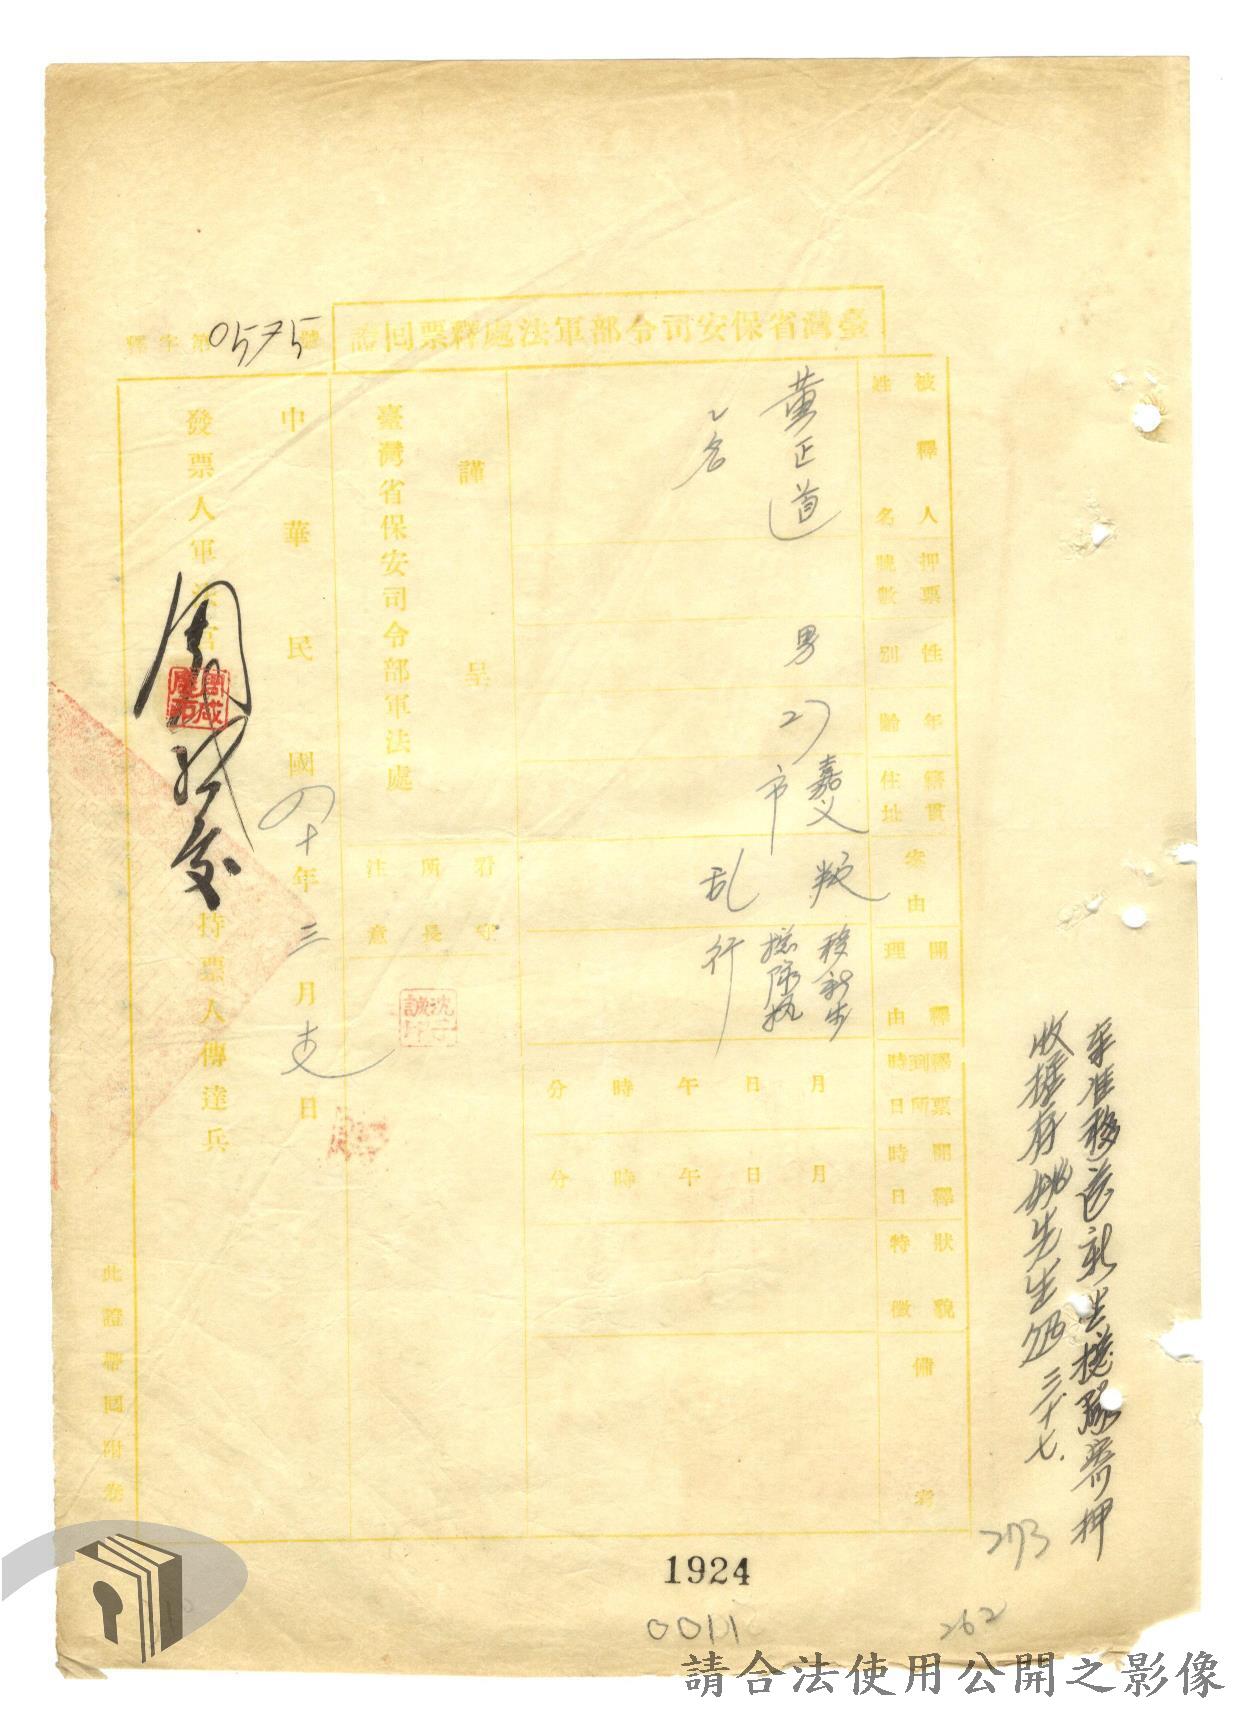 臺灣省保安司令部軍法處釋票回證
釋字第0575號
被釋人姓名
董正道
2名
押票號數
性別
男
年齡
27
籍貫住址
嘉义市
案由
叛乱
開釋理由
移新生總隊执行
釋票到所時日
月日午時分
開釋時日
月日午時分
狀貌特徵
備考
謹呈
臺灣省保安司令部軍法處
看守所長注意
中華民國四十年三月 日
發票人軍法官
周咸慶
持票人傳達兵
此證帶回附卷
奉准移送新生總隊寄押
收據存姚先生處 三十七.
273
1924
0011
262
請合法使用公開之影像